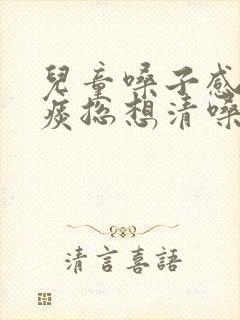 兒童嗓子感
痰总想清嗓
清言喜語